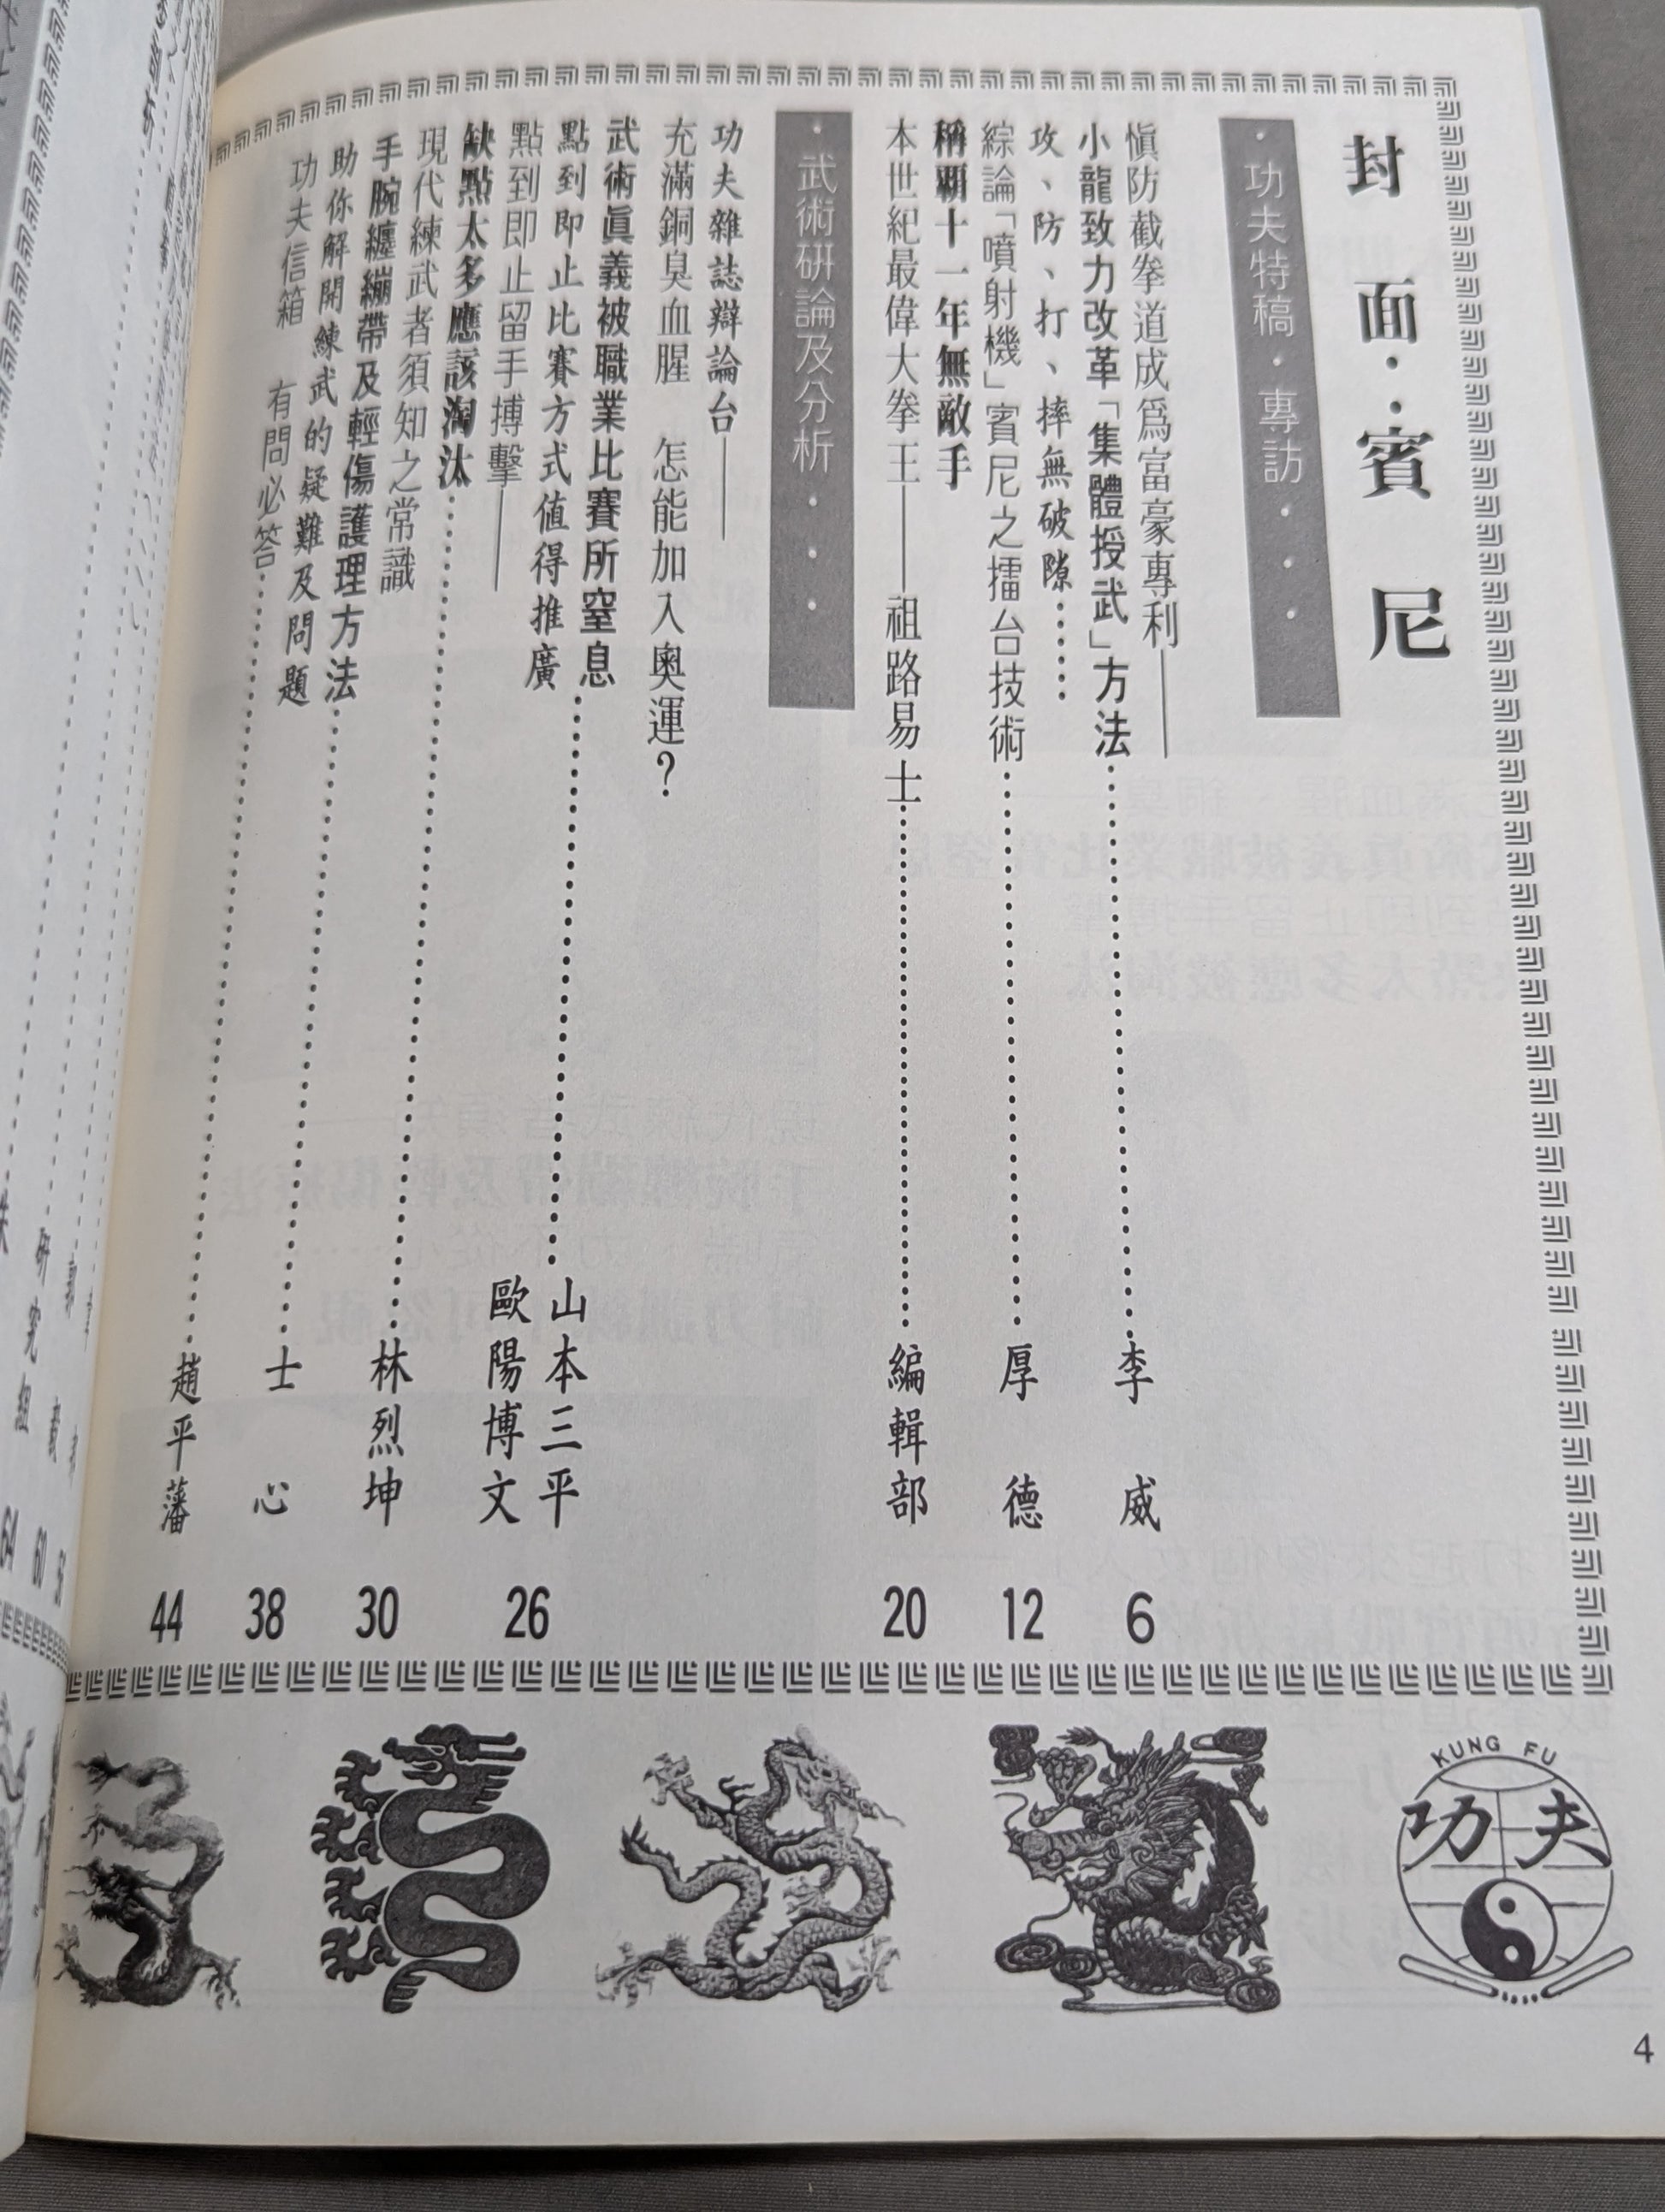 封面：賓尼
功夫特稿・專訪・・・
慎防截拳道成爲富豪專利——
小龍致力改革「集體授武」方法……李威 6
攻、防、打、摔無破隙……
綜論「噴射機」賓尼之擂台技術……厚德 12
稱覇十一年無敵手
本世紀最偉大拳王——祖路易士……編輯部 20
・武術研論及分析・・・
功夫雜誌辯論台——
充滿銅臭血腥 怎能加入奧運？
武術眞義被職業比賽所窒息……山本三平
點到即止比賽方式値得推廣
點到即止留手搏擊——
缺點太多應該淘汰……歐陽博文 26
現代練武者須知之常識
手腕纏繃帶及輕傷護理方法……林烈坤 30
助你解開練武的疑難及問題……士心 38
功夫信箱 有問必答……趙平藩 44
KUNG FU
功夫
4
研究組
64
60